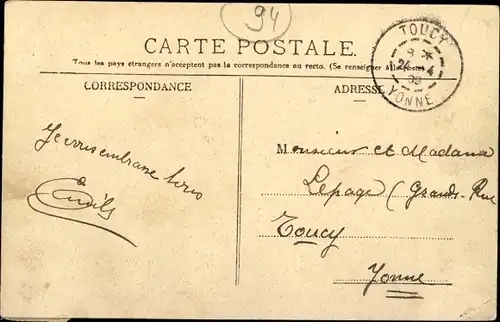 94
CARTE POSTALE.
Tous les pays étrangers n'acceptent pas la correspondance au recto. (Se renseigner
TOUCY
8 *
24 - 4
09
YONNE
CORRESPONDANCE
ADRESSE
Je vous embrasse
Monsieur et Madame
Lepage (Grande Rue
Toucy
Yonne